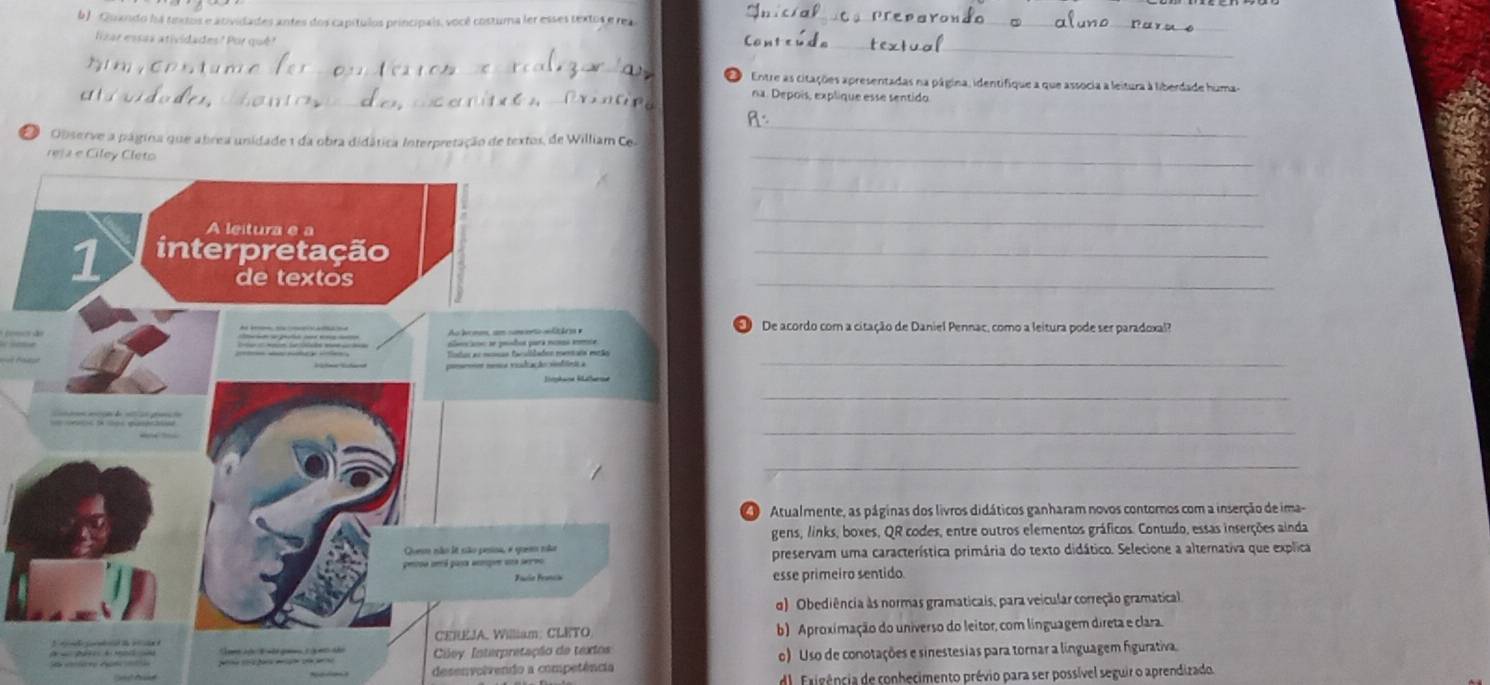 b) Quando há textos e atividades antes dos capítulos principais, você costuma ler esses textos e rea-
lizar essas atividades? Por quê?
Sim, costumo ler os textos e realizar as
atividades, antes dos capítulos princip
2 Observe a página que abrea unidade 1 da obra didática Interpretação de textos, de William Ce-
reja e Ciley Cleto
1
A leitura e a
interpretação
de textos
Ao lermos, um concerto solitário e
silencioso se produz para nossa mente.
Todas as nossas faculdades mentais estão
presentes nessa exaltação sinfônica.
Stéphane Mallarmé
Quem não lê não pensa, e quem não
pensa será para sempre um servo.
Paulo Francis
CEREJA, William; CLETO,
Ciley. Interpretação de textos:
desenvolvendo a competência
Inicial, e a preparando o aluno para o
Conteúdo textual
2 Entre as citações apresentadas na página, identifique a que associa a leitura à liberdade huma-
na. Depois, explique esse sentido.
R:
3 De acordo com a citação de Daniel Pennac, como a leitura pode ser paradoxal?
4 Atualmente, as páginas dos livros didáticos ganharam novos contornos com a inserção de ima-
gens, links, boxes, QR codes, entre outros elementos gráficos. Contudo, essas inserções ainda
preservam uma característica primária do texto didático. Selecione a alternativa que explica
esse primeiro sentido.
a) Obediência às normas gramaticais, para veicular correção gramatical.
b) Aproximação do universo do leitor, com linguagem direta e clara.
c) Uso de conotações e sinestesias para tornar a linguagem figurativa.
d) Exigência de conhecimento prévio para ser possível seguir o aprendizado.